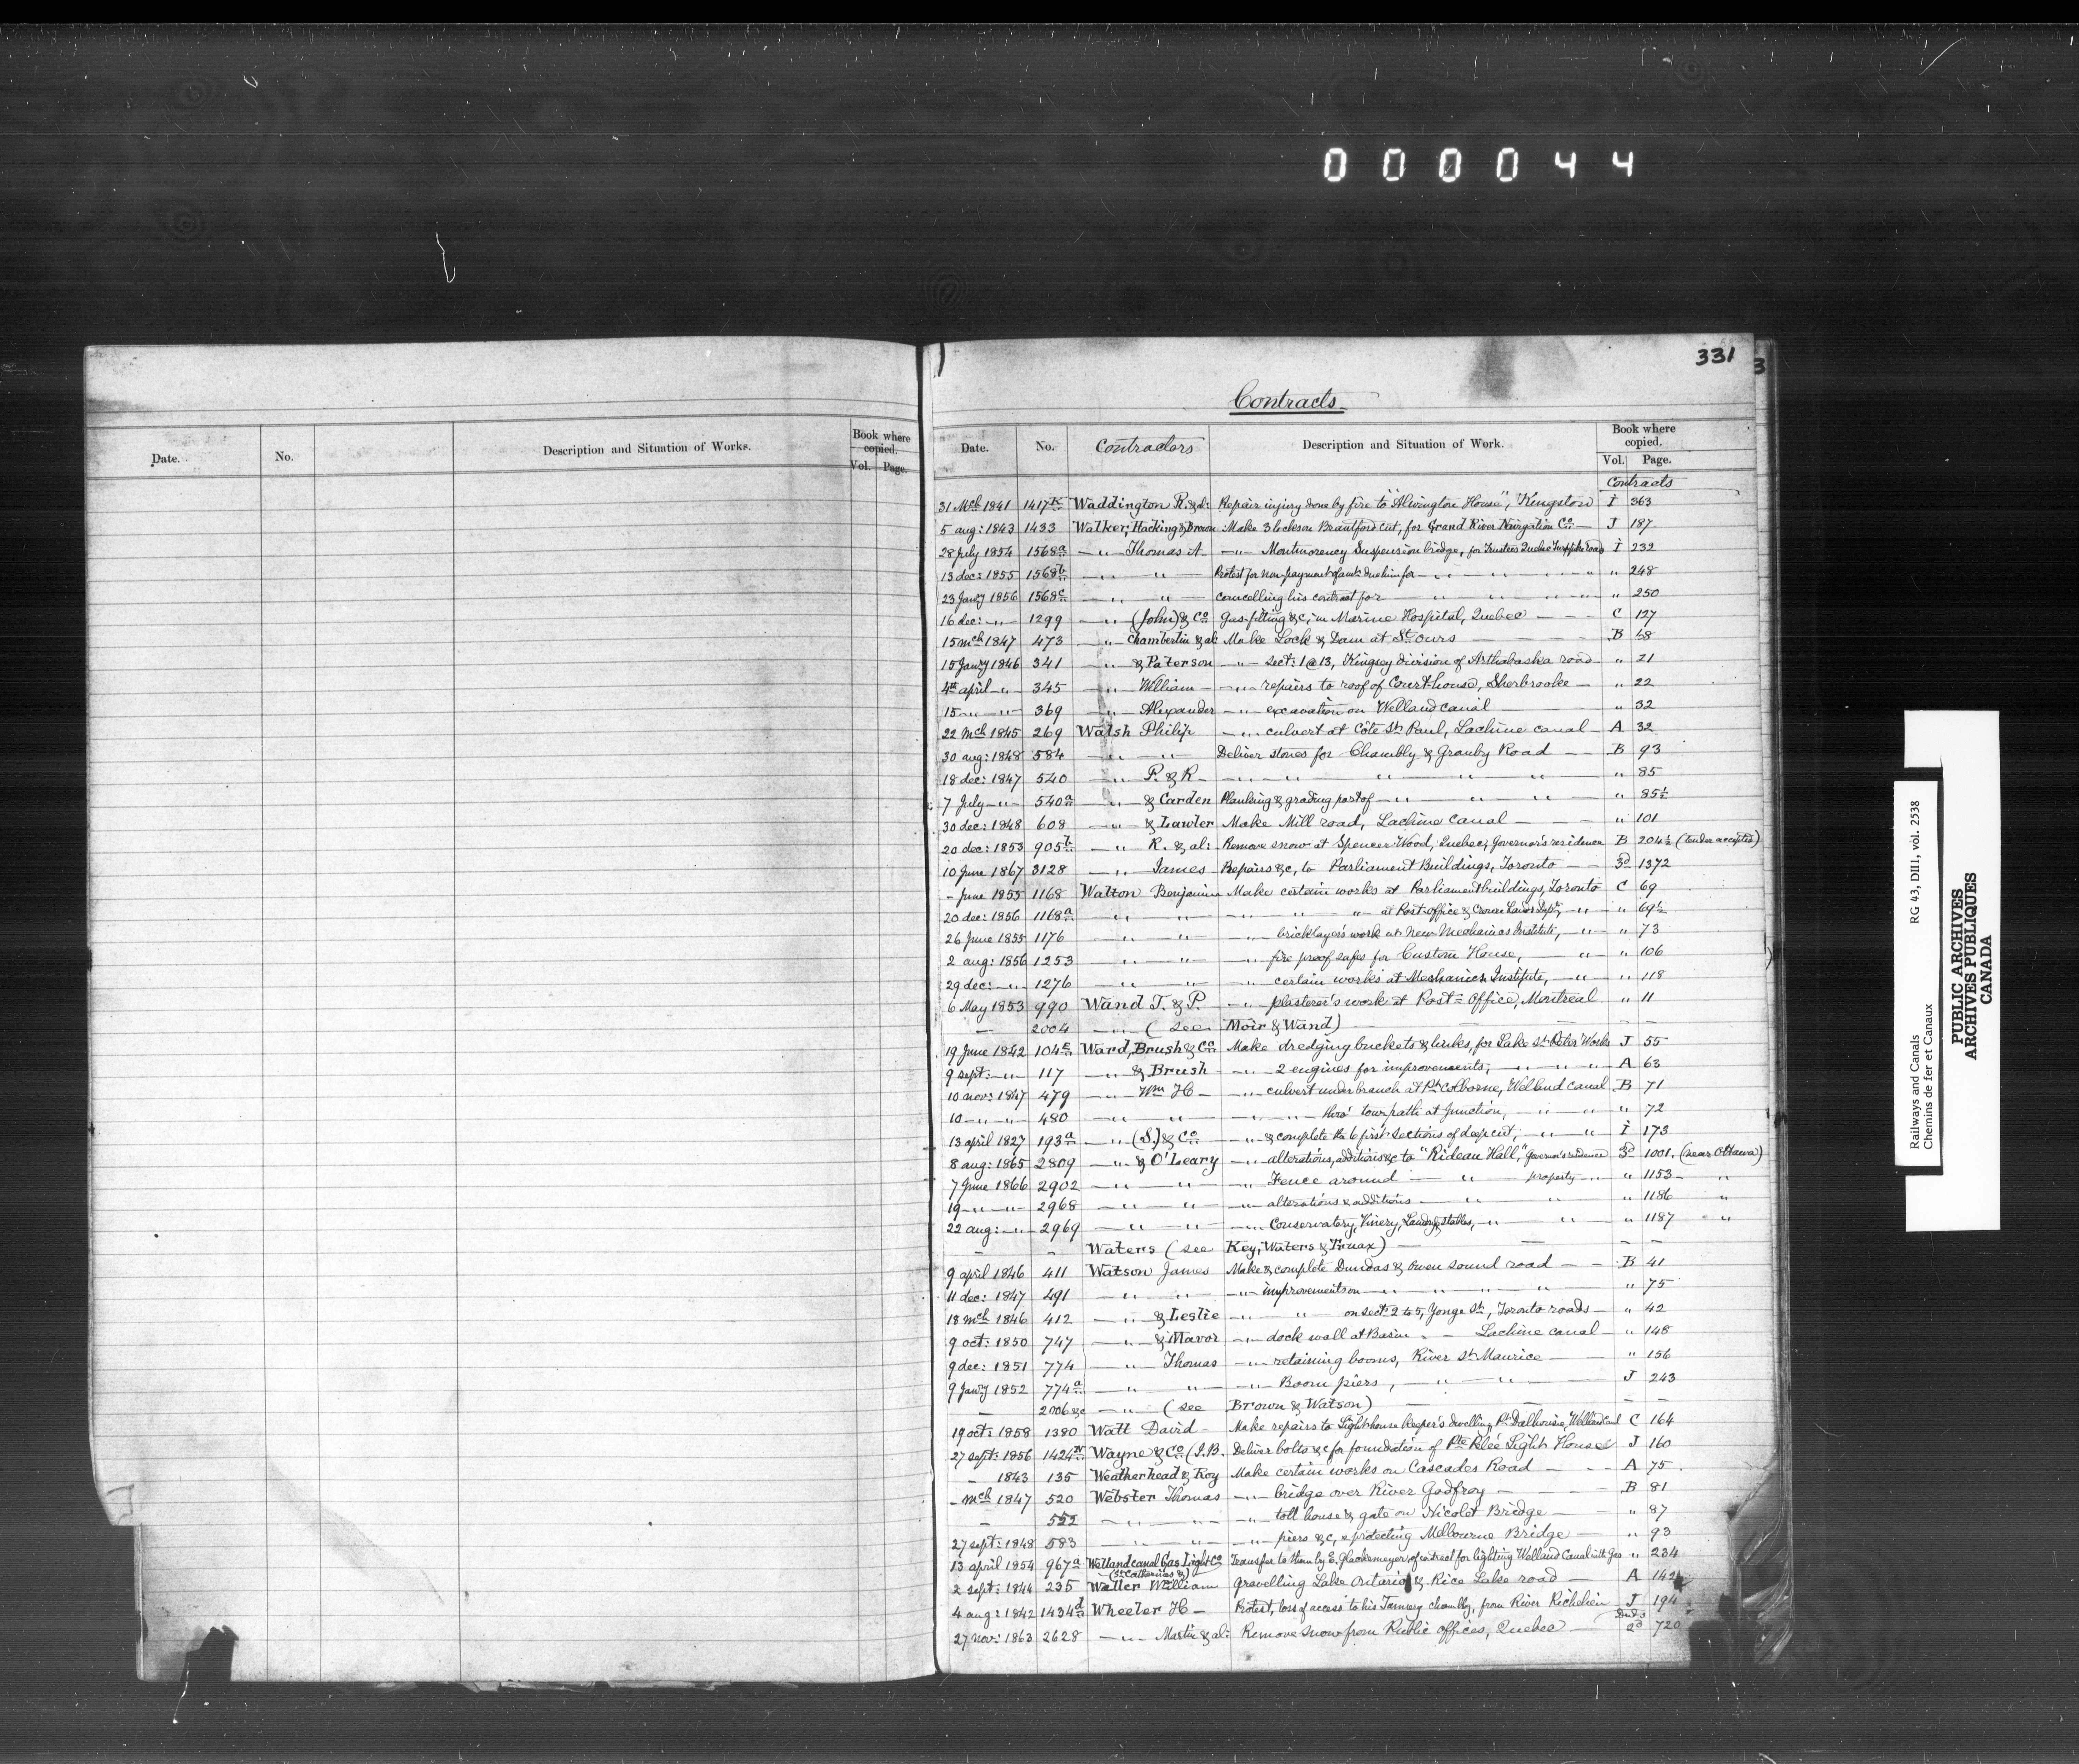 000044
331
Contracts
Date. No. Description and Situation of Works. Book where copied. Vol. Page.
Date. No. Contractors Description and Situation of Work. Book where copied. Vol. Page.
Contracts
31 Mch 1841 1417 K Waddington R. & al: Repair injury done by fire to "Alwington House", Kingston I 363
5 aug: 1843 1433 Walker, Hacking & Brown : Make 3 locks on Brantford cut, for Grand River Navigation Co. — J 187
28 July 1854 1568 a —"— Thomas A —"— Montmorency Suspension bridge, for Trustees Quebec Turnpike Roads I 232
13 dec: 1855 1568 b —"— " — Protest for non-payment of amt. due him for —"— " — " — " " 248
23 Jany 1856 1568 c —"— " — Cancelling his contract for — " — " — " — " " 250
16 dec: —"— 1299 —"— (John) & Co Gas-fitting &c, in Marine Hospital, Quebec — — — C 127
15 mch 1847 473 —"— Chamberlin & al: Make Lock & Dam at St. Ours — — — B 68
15 Jany 1846 341 —"— & Paterson —"— sect: 1 @ 13, Kingsey division of Arthabaska road — " 21
4th april —"— 345 —"— William — —"— repairs to roof of Court-house, Sherbrooke — " 22
15 —"— —"— 369 —"— Alexander —"— excavation on Welland canal — " 32
22 Mch 1845 269 Walsh Philip —"— culvert at Côte St. Paul, Lachine canal — A 32
30 aug: 1848 584 —"— —"— Deliver stones for Chambly & Granby Road — — B 93
18 dec: 1847 540 —"— P. & R — —"— " — " — " — " " 85
7 July —"— 540 a —"— & Carden Planking & grading part of —"— " — " " 85½
30 dec: 1848 608 —"— & Lawler Make Mill road, Lachine Canal — — — " 101
20 dec: 1853 905 b —"— R. & al: Remove snow at Spencer-Wood, Quebec, Governor's residence B 204½ (tender accepted)
10 June 1867 3128 —"— James Repairs &c, to Parliament Buildings, Toronto — — 3d 1372
- June 1855 1168 Walton Benjamin Make certain works at Parliament buildings, Toronto C 69
20 dec: 1856 1168 a —"— " — —"— " — " — at Post-office & Crown Lands Dept, —"— " 69½
26 June 1855 1176 —"— " — —"— bricklayer's work at New Mechanics Institute, —"— " 73
2 aug: 1856 1253 —"— " — —"— fire proof safes for Custom House, — " — " 106
29 dec: —"— 1276 —"— " — —"— certain works at Mechanics Institute, —"— " 118
6 May 1853 990 Wand T. & P. —"— plasterer's work at Post-Office, Montreal " 11
— 2004 —"— ( see Moir & Wand) — — — —
19 June 1842 104 E Ward, Brush & Co Make dredging buckets & links, for Lake St. Peter Works J 55
9 sept: —"— 117 —"— & Brush —"— 2 engines for improvements, —"— " — " A 63
10 nov: 1847 479 —"— Wm H — —"— culvert under branch at Pt. Colborne, Welland canal B 71
10 —"— —"— 480 —"— —"— —"— —"— thro' tow-path at Junction, —"— " " 72
13 april 1827 193 a —"— (S.) & Co —"— & complete the 6 first sections of deep cut, —"— " I 173
8 aug: 1865 2809 —"— & O'Leary —"— alterations, additions &c to "Rideau Hall," Governor's residence 3d 1001. (near Ottawa)
7 June 1866 2902 —"— —"— —"— Fence around — " — property —"— " 1153 — "
19 —"— —"— 2968 —"— —"— —"— alterations & additions — " — " — " 1186 "
22 aug: —"— 2969 —"— —"— —"— Conservatory, Vinery, Laundry, stables, —"— " — " 1187 "
— — Waters ( see Key, Waters & Truax) — — — —
9 april 1846 411 Watson James Make & complete Dundas & Owen Sound road — — B 41
11 dec: 1847 491 —"— —"— —"— improvements on —"— " — " — " " 75
18 mch 1846 412 —"— & Leslie —"— " — on sect: 2 to 5, Yonge St., Toronto roads — " 42
9 oct: 1850 747 —"— & Mavor —"— dock wall at Basin — Lachine canal — " 148
9 dec: 1851 774 —"— Thomas —"— retaining booms, River St. Maurice — " 156
9 Jany 1852 774 a —"— " — —"— Boom piers, —"— " — J 243
— 2006 &c —"— ( see Brown & Watson) — — — —
19 oct: 1858 1380 Watt David — Make repairs to Light-house keeper's dwelling, Pt. Dalhousie, Welland canal C 164
27 sept: 1856 1424 N Wayne & Co (J.B. Deliver bolts &c for foundation of Pte. Pelée Light House J 160
— 1843 135 Weatherhead & Roy Make certain works on Cascades Road — — A 75
- mch 1847 520 Webster Thomas —"— bridge over River Godfroy — — B 81
— 552 —"— —"— —"— toll house & gate on Nicolet Bridge — " 87
27 sept: 1848 583 —"— —"— —"— piers &c, protecting Melbourne Bridge — " 93
13 april 1854 967 a Welland canal Gas Light Co (St Catherines &) Transfer to them by E. Glackemeyer, of contract for lighting Welland Canal with Gas " 234
2 sept: 1844 235 Weller William Gravelling Lake Ontario & Rice Lake road — A 142
4 aug: 1842 1434 d Wheeler H — Protest, loss of access to his Tannery Chambly, from River Richelieu J 194
27 nov: 1863 2628 —"— Martin & al: Remove snow from Public offices, Quebec — 2d 720
Railways and Canals RG 43, DIII, vol. 2538
Chemins de fer et Canaux
PUBLIC ARCHIVES
ARCHIVES PUBLIQUES
CANADA